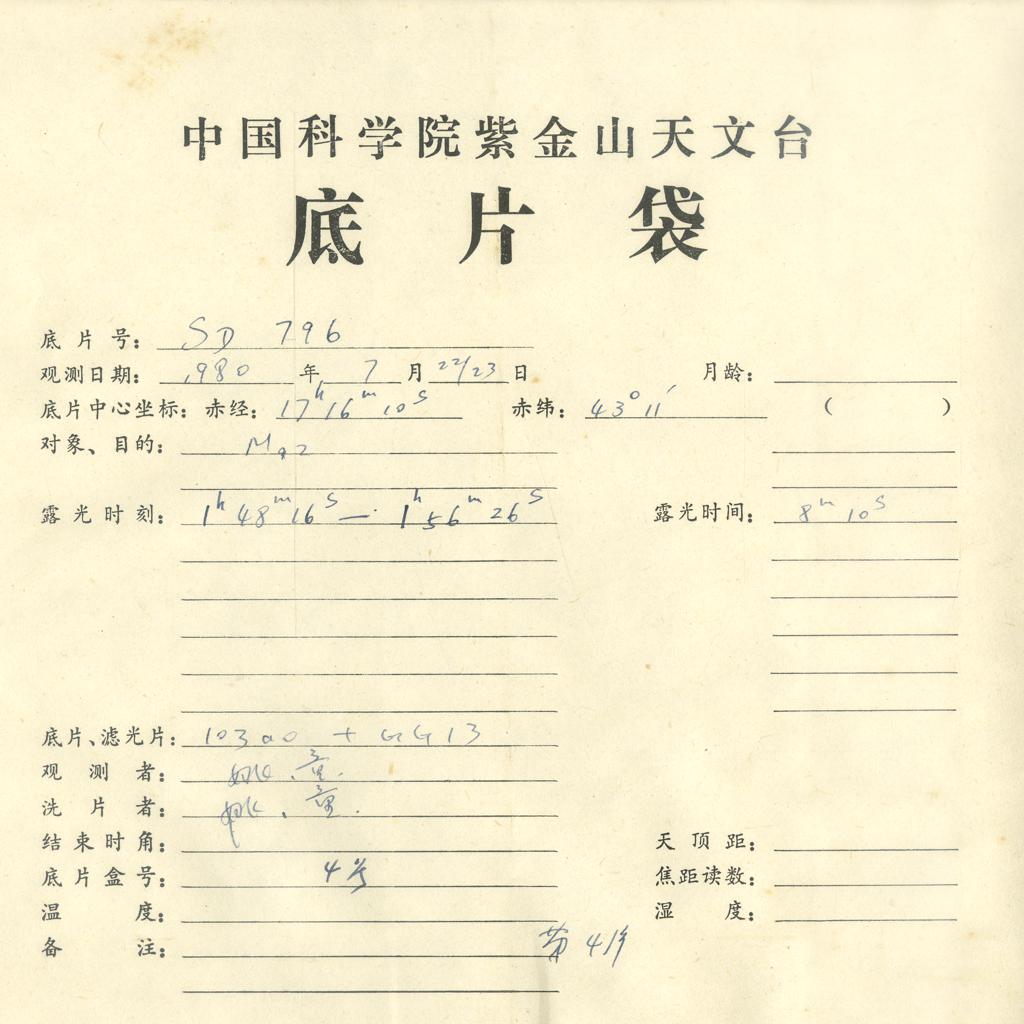 中国科学院紫金山天文台
底片袋
底片号： SD 796
观测日期： 1980 年 7 月 22/23 日 月龄：
底片中心坐标：赤经： 17h 16m 10s 赤纬： 43° 11′ ( )
对象、目的： M92
露光时刻： 1h 48m 16s — 1h 56m 26s 露光时间： 8m 10s
底片、滤光片： 103aO + GG13
观测者： 姚、童.
洗片者： 姚、童.
结束时角： 天顶距：
底片盒号： 4号 焦距读数：
温度： 湿度：
备注： 4